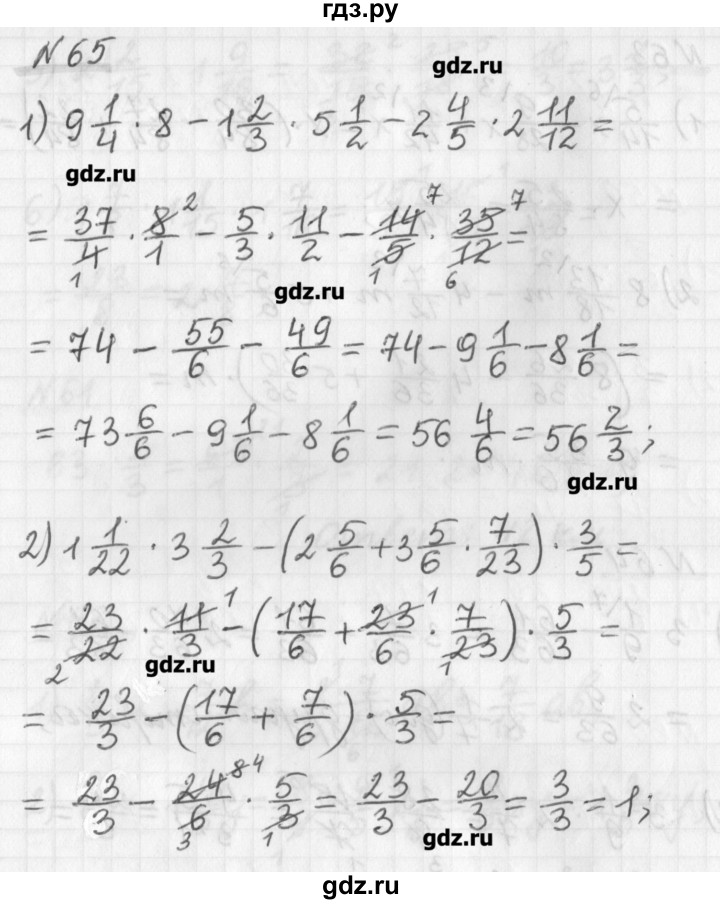 гдз.ру
N 65
gdz.ru
1) 9 1/4 · 8 − 1 2/3 · 5 1/2 − 2 4/5 · 2 11/12 =
gdz.ru
= 37/4 · 8/1 − 5/3 · 11/2 − 14/5 · 35/12 =
2 7 7
1 1 6
gdz.ru
= 74 − 55/6 − 49/6 = 74 − 9 1/6 − 8 1/6 =
= 73 6/6 − 9 1/6 − 8 1/6 = 56 4/6 = 56 2/3 ;
gdz.ru
2) 1 1/22 · 3 2/3 − (2 5/6 + 3 5/6 · 7/23) · 3/5 =
= 23/22 · 11/3 − (17/6 + 23/6 · 7/23) · 5/3 =
1 1
2 1
gdz.ru
= 23/3 − (17/6 + 7/6) · 5/3 =
= 23/3 − 24/6 · 5/3 = 23/3 − 20/3 = 3/3 = 1;
8 4
3 1
gdz.ru
gdz.ru